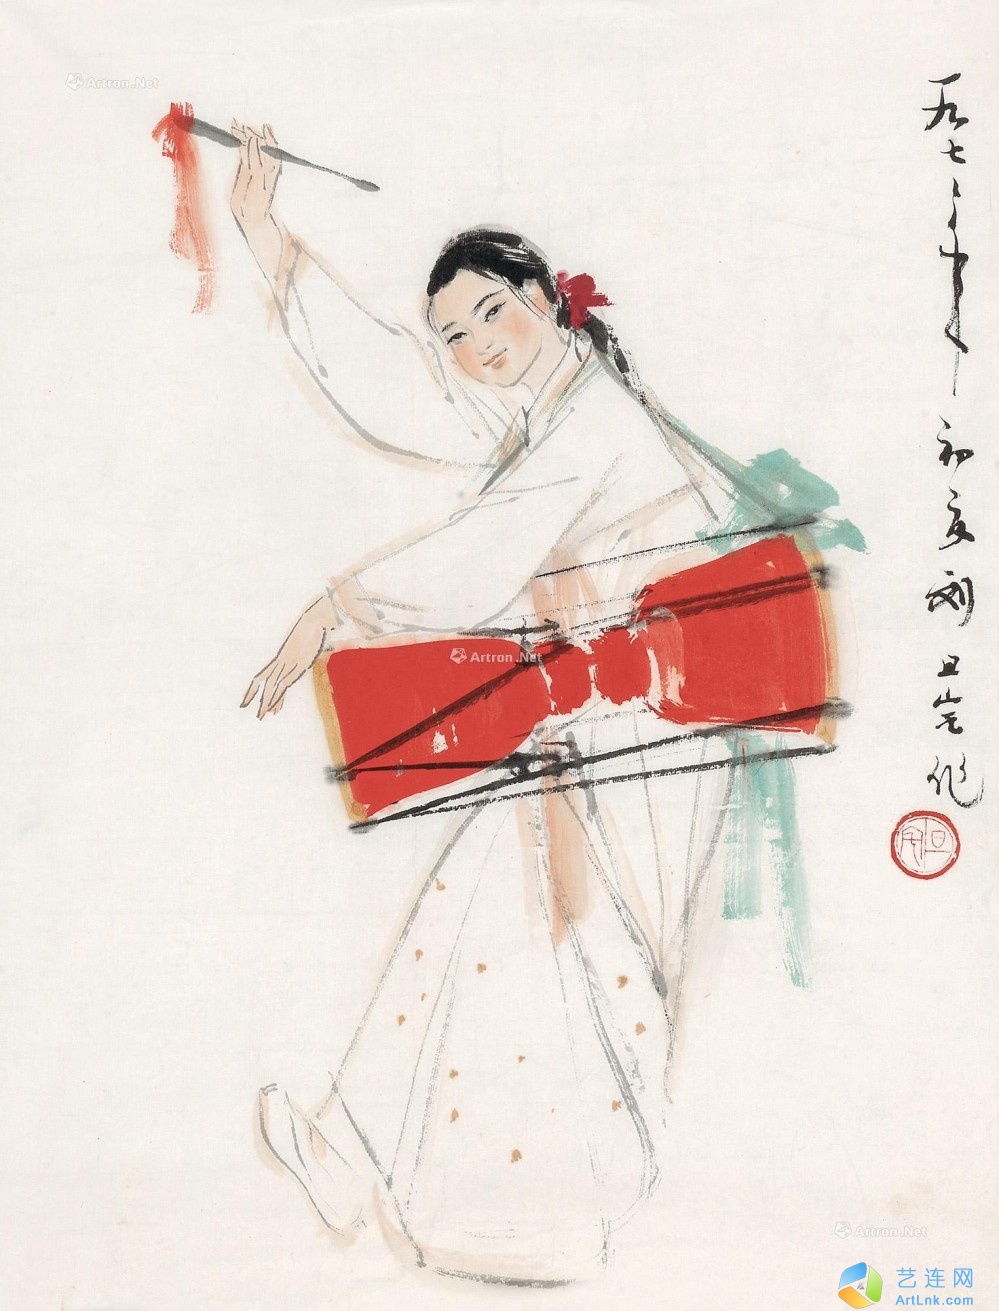 一九七二年初夏刘旦宅作
Artron.Net
Artron.Net
Artron.Net
艺连网
ArtLnk.com